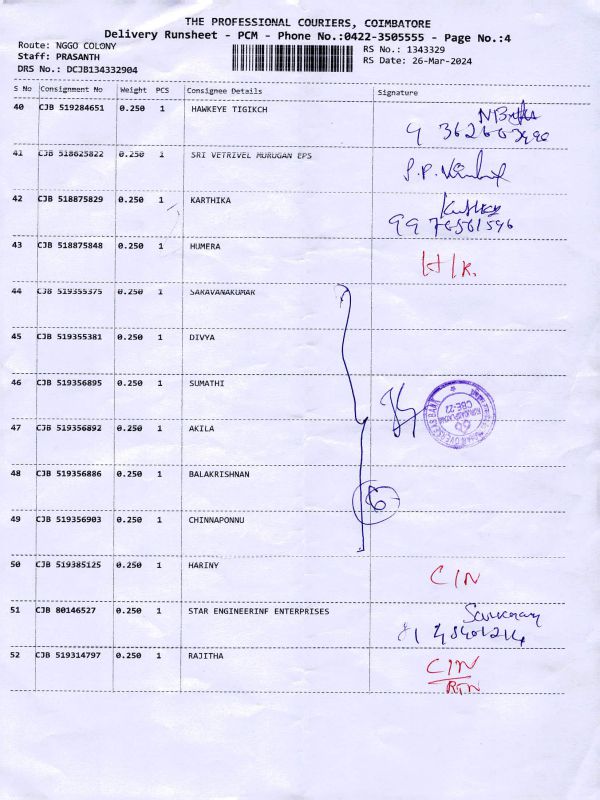 THE PROFESSIONAL COURIERS, COIMBATORE
Delivery Runsheet - PCM - Phone No.:0422-3505555 - Page No.:4
Route: NGGO COLONY
RS No.: 1343329
Staff: PRASANTH
RS Date: 26-Mar-2024
DRS No.: DCJB134332904
S No Consignment No Weight PCS Consignee Details Signature
40 CJB 519284651 0.250 1 HAWKEYE TIGIKCH
41 CJB 518625822 0.250 1 SRI VETRIVEL MURUGAN EPS
42 CJB 518875829 0.250 1 KARTHIKA
43 CJB 518875848 0.250 1 HUMERA
H/K.
44 CJB 519355375 0.250 1 SARAVANAKUMAR
45 CJB 519355381 0.250 1 DIVYA
46 CJB 519356895 0.250 1 SUMATHI
47 CJB 519356892 0.250 1 AKILA
48 CJB 519356886 0.250 1 BALAKRISHNAN
6
49 CJB 519356903 0.250 1 CHINNAPONNU
50 CJB 519385125 0.250 1 HARINY
C/N
51 CJB 80146527 0.250 1 STAR ENGINEERINF ENTERPRISES
52 CJB 519314797 0.250 1 RAJITHA
C/N
RTN